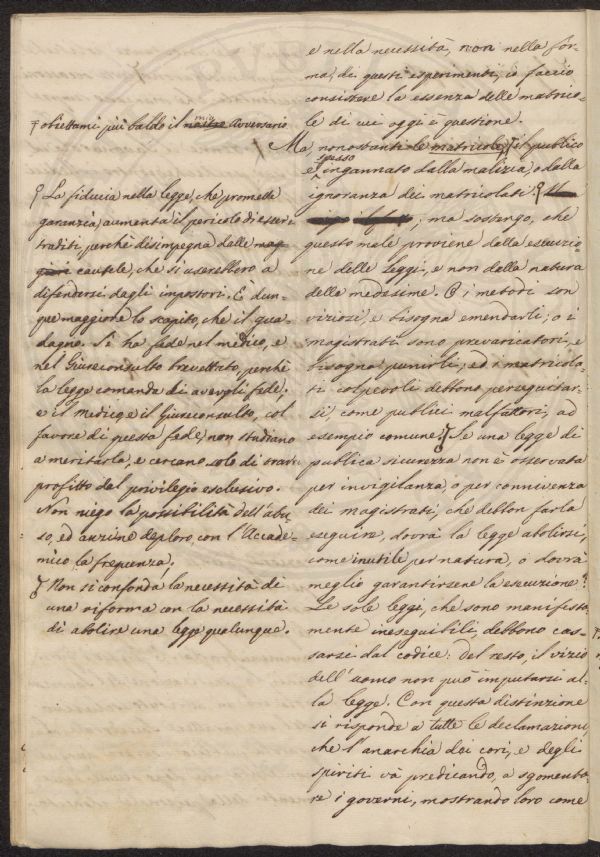 e nella necessità, non nella for-
ma, di questi esperimenti, io faccio
consistere la essenza delle matrico-
le di cui oggi è questione.
Ma nonostanti le matricole, il pubblico
è spesso ingannato dalla malizia, o dalla
ignoranza dei matricolati
; ma sostengo, che
questo male proviene dalla esecuzio-
ne delle leggi, e non dalla natura
delle medesime. O i metodi son
viziosi, e bisogna emendarli; o i
magistrati sono prevaricatori, e
bisogna punirli; ed i matricola-
ti colpevoli debbono perseguitar-
si, come publici malfattori, ad
esempio comune. Se una legge di
publica sicurezza non è osservata
per invigilanza, o per connivenza
dei magistrati, che debbon farla
eseguire, dovrà la legge abolirsi,
come inutile per natura, o dovrà
meglio garantirsene la esecuzione?
Le sole leggi, che sono manifesta
mente ineseguibili, debbono cas-
sarsi dal codice: Del resto, il vizio
dell'uomo non può imputarsi al-
la legge. Con questa distinzione
si risponde a tutte le declamazioni
che l'anarchia dei cori, e degli
spiriti và predicando, a sgomenta
re i governi, mostrando loro come
obiettami più baldo il mio Avversario
La fiducia nella legge, che promette
garanzia, aumenta il pericolo di essere
traditi, perchè disimpegna dalle
cautele, che si userebbero a
difendersi dagli impostori. È dun-
que maggiore lo scapito, che il gua-
dagno. Si ha fede nel medico, e
nel Giureconsulto brevettato, perchè
la legge comanda di avervgli fede;
e il Medico e il Giureconsulto, col
favore di questa fede, non studiano
a meritarla, e cercano solo di trarre
profitto dal privilegio esclusivo.
Non niego la possibilità dell'abu-
so, ed anzi ne deploro, con l'Accade-
mico la frequenza;
Non si confonda la necessità di
una riforma con la necessità
di abolire una legge qualunque.